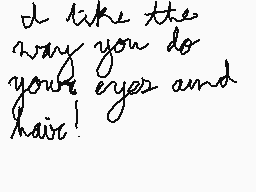 I like the
way you do
your eyes and
hair!